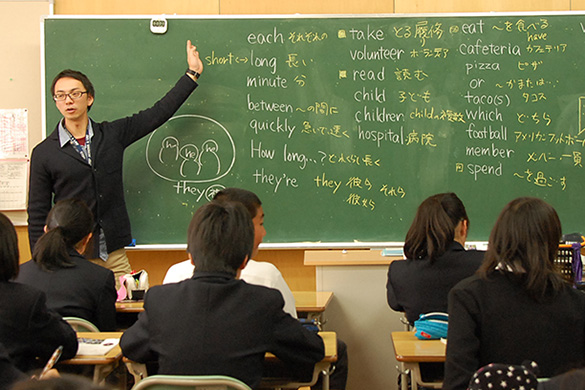 each それぞれの
short ↔ long 長い
minute 分
between 〜の間に
quickly 急いで、速く
How long...? どれくらい長く
they're they 彼ら それら
彼女ら
he he he
they
take とる 履修
volunteer ボランティア
read 読む
child 子ども
children childの複数
hospital 病院
eat 〜を食べる
have
cafeteria カフェテリア
pizza ピザ
or 〜かまたは…
taco(s) タコス
which どちら
football アメリカンフットボール
member メンバー、一員
spend 〜を過ごす